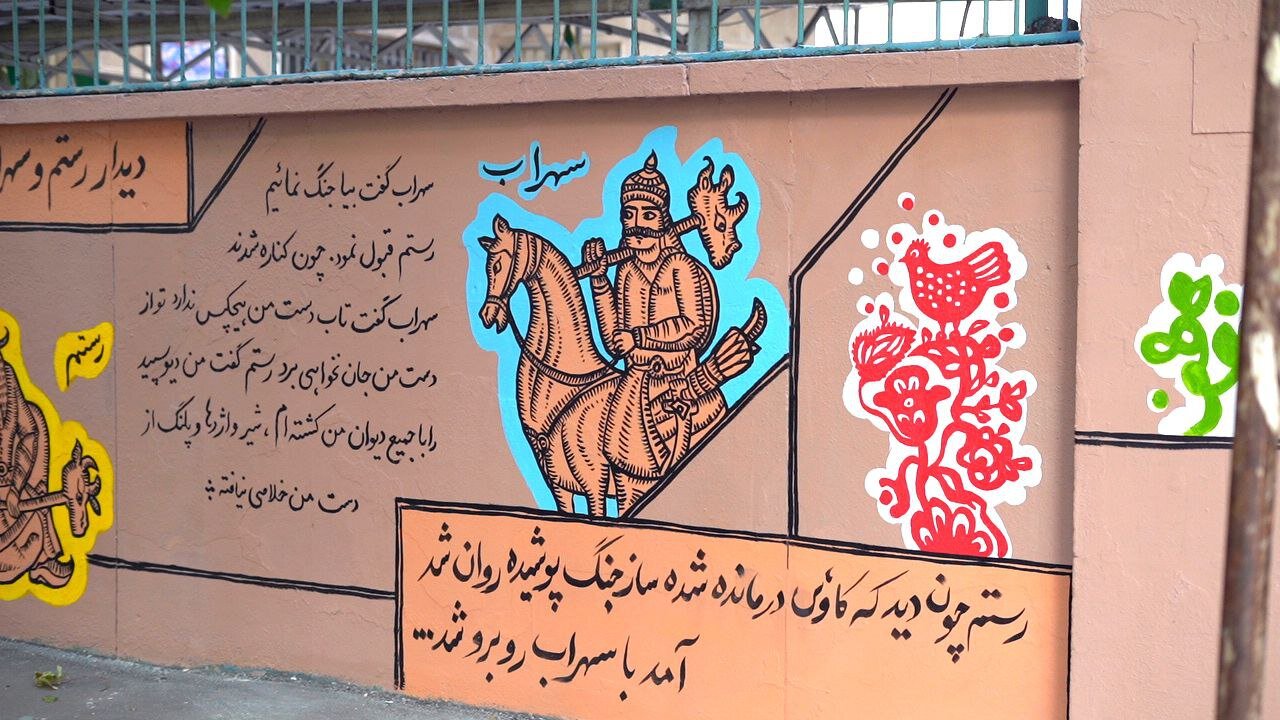 دیدار رستم و سهرا
سهراب
رستم
سهراب گفت بیا جنگ نمائیم
رستم قبول نمود. چون کناره شدند
سهراب گفت تاب دست من هیچکس ندارد تو از
دست من جان نخواهی برد رستم گفت من دیو سپید
را با جمیع دیوان من کشته ام، شیر و اژدها و پلنگ از
دست من خلاصی نیافته
رستم چون دید که کاوس درمانده شده ساز جنگ پوشیده روان شد
آمد با سهراب روبرو شد...